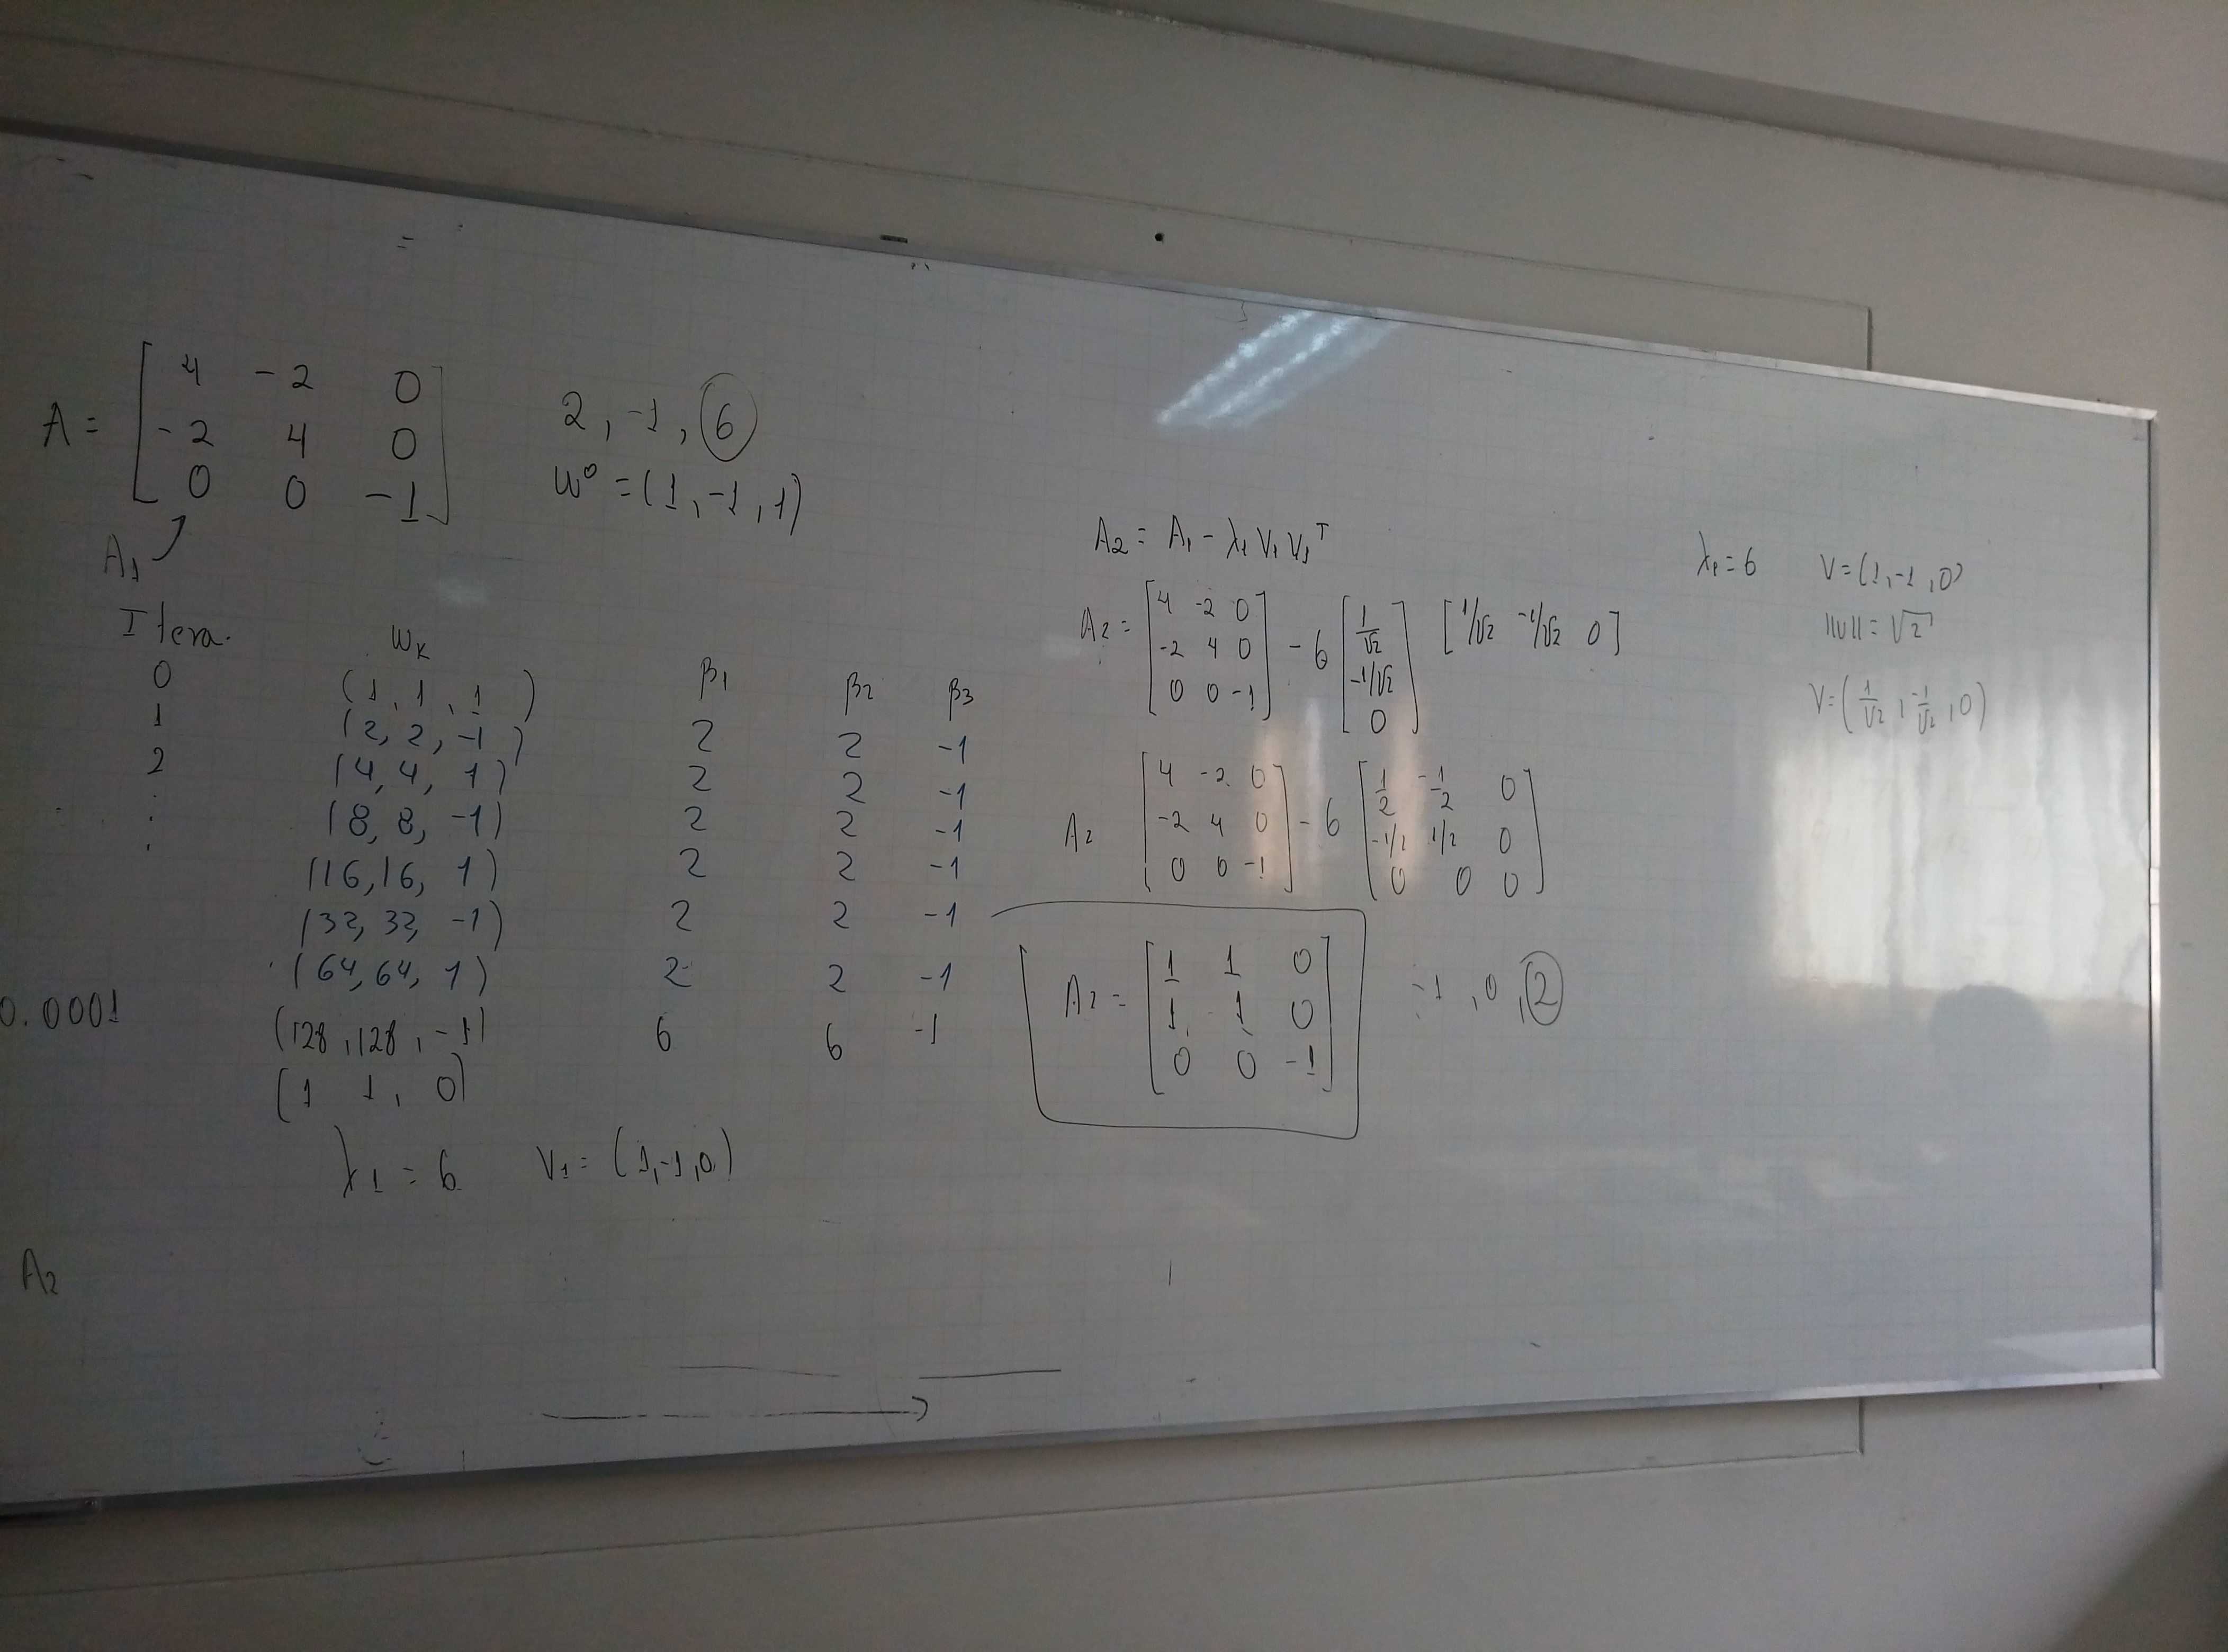 A = [ 4 -2 0
-2 4 0
0 0 -1 ]
2, -1, 6
w⁰ = (1, -1, 1)
A₁
Itera. wₖ β₁ β₂ β₃
0 (1, 1, 1)
1 (2, 2, -1) 2 2 -1
2 (4, 4, 1) 2 2 -1
. (8, 8, -1) 2 2 -1
. (16, 16, 1) 2 2 -1
. (32, 32, -1) 2 2 -1
(64, 64, 1) 2 2 -1
0.0001 (128, 128, -1) 6 6 -1
(1 1, 0)
λ₁ = 6 v₁ = (1, -1, 0)
A₂
A₂ = A₁ - λ₁ v₁ v₁ᵀ
A₂ = [ 4 -2 0
-2 4 0
0 0 -1 ] - 6 [ 1/√2
-1/√2
0 ] [ 1/√2 -1/√2 0 ]
A₂ [ 4 -2 0
-2 4 0
0 0 -1 ] - 6 [ 1/2 -1/2 0
-1/2 1/2 0
0 0 0 ]
A₂ = [ 1 1 0
1 1 0
0 0 -1 ]
-1, 0, 2
λ₁ = 6 V = (1, -1, 0)
||v|| = √2
V = (1/√2, -1/√2, 0)